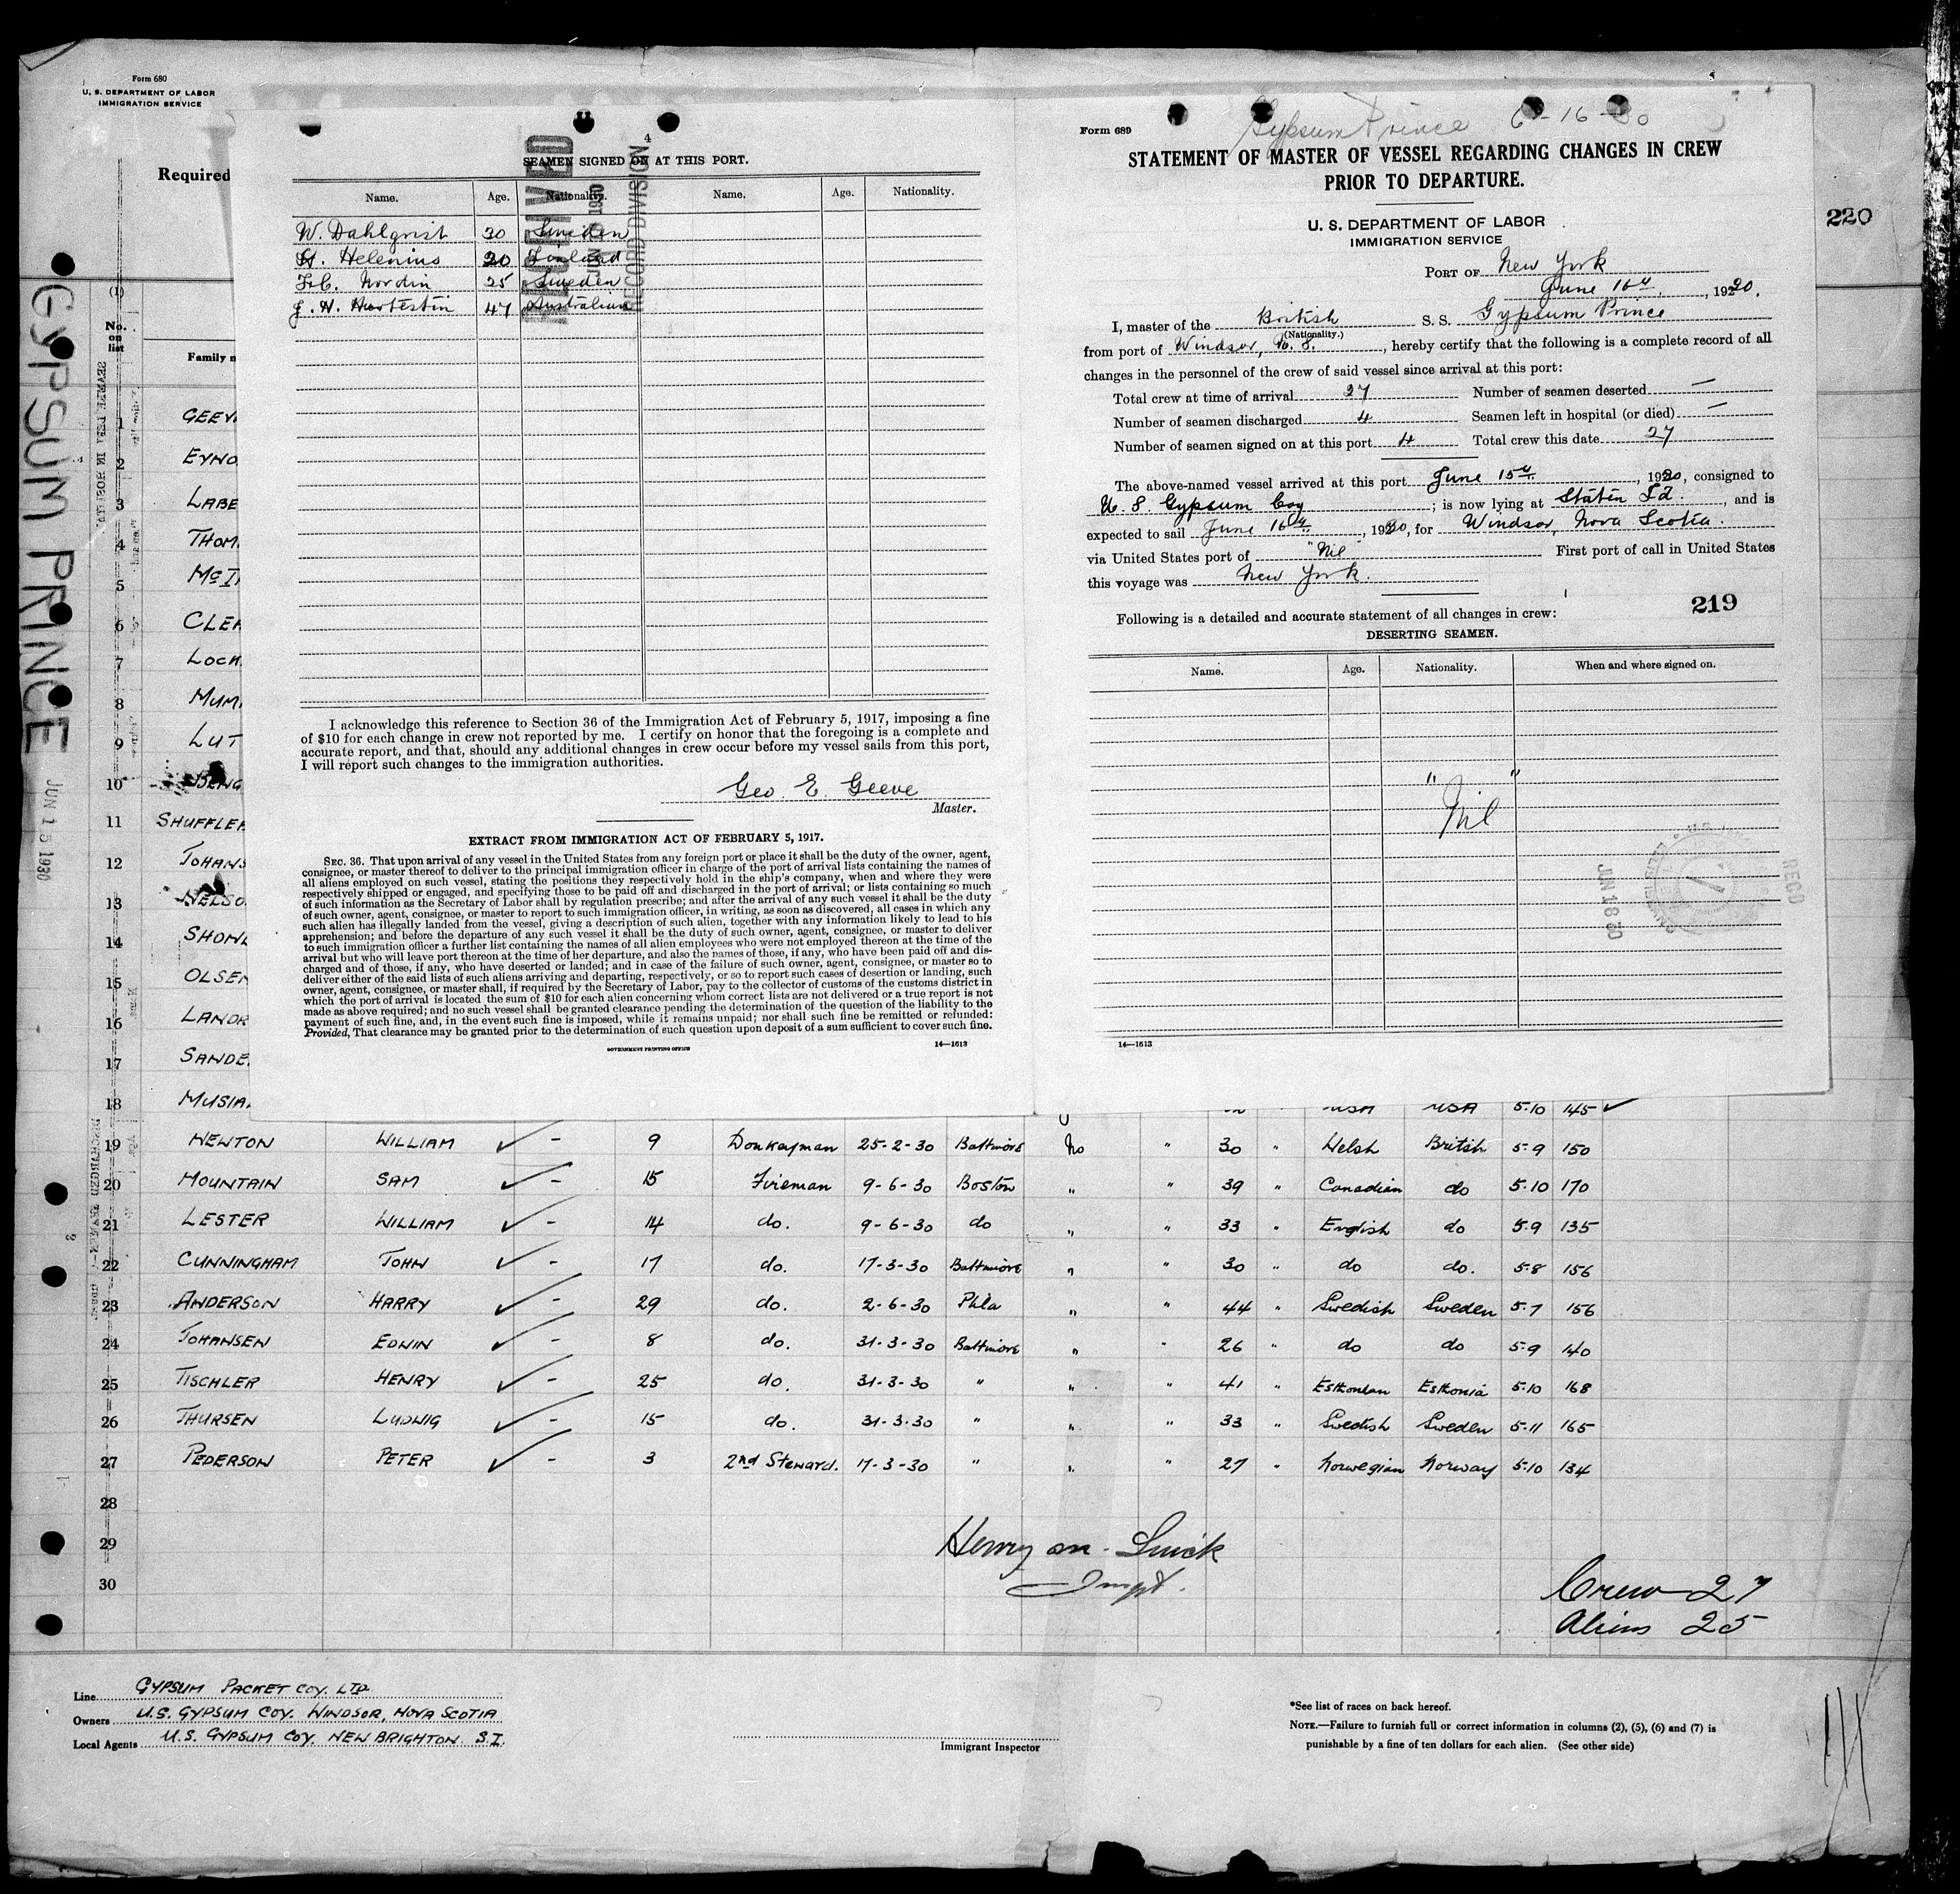 Form 680
U. S. DEPARTMENT OF LABOR
IMMIGRATION SERVICE
Required
220
GYPSUM PRINCE
JUN 15 1930
(1)
No. on list
Family n
1 GEEV
2 EYNO
3 LABE
4 THOM
5 McI
6 CLE
7 LOCK
8 MUM
9 LUT
10 BENG
11 SHUFFLE
12 JOHANS
13 NELSO
14 SHON
15 OLSE
16 LANDR
17 SANDE
18 MUSIA
4
SEAMEN SIGNED ON AT THIS PORT.
RECEIVED
JUN 1930
RECORD DIVISION
Name. Age. Nationality. Name. Age. Nationality.
W. Dahlqvist 30 Sweden
H. Helenius 20 Finland
Nordin 25 Sweden
J. H. Hartestin 47 Australian
I acknowledge this reference to Section 36 of the Immigration Act of February 5, 1917, imposing a fine
of $10 for each change in crew not reported by me. I certify on honor that the foregoing is a complete and
accurate report, and that, should any additional changes in crew occur before my vessel sails from this port,
I will report such changes to the immigration authorities.
Geo. E. Geeve
Master.
EXTRACT FROM IMMIGRATION ACT OF FEBRUARY 5, 1917.
SEC. 36. That upon arrival of any vessel in the United States from any foreign port or place it shall be the duty of the owner, agent,
consignee, or master thereof to deliver to the principal immigration officer in charge of the port of arrival lists containing the names of
all aliens employed on such vessel, stating the positions they respectively hold in the ship's company, when and where they were
respectively shipped or engaged, and specifying those to be paid off and discharged in the port of arrival; or lists containing so much
of such information as the Secretary of Labor shall by regulation prescribe; and after the arrival of any such vessel it shall be the duty
of such owner, agent, consignee, or master to report to such immigration officer, in writing, as soon as discovered, all cases in which any
such alien has illegally landed from the vessel, giving a description of such alien, together with any information likely to lead to his
apprehension; and before the departure of any such vessel it shall be the duty of such owner, agent, consignee, or master to deliver
to such immigration officer a further list containing the names of all alien employees who were not employed thereon at the time of the
arrival but who will leave port thereon at the time of her departure, and also the names of those, if any, who have been paid off and dis-
charged and of those, if any, who have deserted or landed; and in case of the failure of such owner, agent, consignee, or master so to
deliver either of the said lists of such aliens arriving and departing, respectively, or so to report such cases of desertion or landing, such
owner, agent, consignee, or master shall, if required by the Secretary of Labor, pay to the collector of customs of the customs district in
which the port of arrival is located the sum of $10 for each alien concerning whom correct lists are not delivered or a true report is not
made as above required; and no such vessel shall be granted clearance pending the determination of the question of the liability to the
payment of such fine, and, in the event such fine is imposed, while it remains unpaid; nor shall such fine be remitted or refunded:
Provided, That clearance may be granted prior to the determination of such question upon deposit of a sum sufficient to cover such fine.
GOVERNMENT PRINTING OFFICE 14—1613
Gypsum Prince 6-16-30
Form 689
STATEMENT OF MASTER OF VESSEL REGARDING CHANGES IN CREW
PRIOR TO DEPARTURE.
U. S. DEPARTMENT OF LABOR
IMMIGRATION SERVICE
PORT OF New York
June 16th, 1930.
I, master of the British S. S. Gypsum Prince
(Nationality.)
from port of Windsor, N. S., hereby certify that the following is a complete record of all
changes in the personnel of the crew of said vessel since arrival at this port:
Total crew at time of arrival 27 Number of seamen deserted —
Number of seamen discharged 4 Seamen left in hospital (or died) —
Number of seamen signed on at this port 4 Total crew this date 27
The above-named vessel arrived at this port June 15th, 1930, consigned to
U. S. Gypsum Coy; is now lying at Staten Id., and is
expected to sail June 16th, 1930, for Windsor, Nova Scotia.
via United States port of "Nil" First port of call in United States
this voyage was New York.
219
Following is a detailed and accurate statement of all changes in crew:
DESERTING SEAMEN.
Name. Age. Nationality. When and where signed on.
" Nil "
JUN 16 30
RECD
14—1613
USA USA 5-10 145 ✓
19 NEWTON WILLIAM ✓ - 9 Donkeyman 25-2-30 Baltimore No " 30 " Welsh British 5-9 150
20 MOUNTAIN SAM ✓ - 15 Fireman 9-6-30 Boston " " 39 " Canadian do 5-10 170
21 LESTER WILLIAM ✓ - 14 do. 9-6-30 do " " 33 " English do 5-9 135
22 CUNNINGHAM JOHN ✓ - 17 do. 17-3-30 Baltimore " " 30 " do do. 5-8 156
23 ANDERSON HARRY ✓ - 29 do. 2-6-30 Phla " " 44 " Swedish Sweden 5-7 156
24 JOHANSEN EDWIN ✓ - 8 do. 31-3-30 Baltimore " " 26 " do do 5-9 140
25 TISCHLER HENRY ✓ - 25 do. 31-3-30 " " " 41 " Esthonian Esthonia 5-10 168
26 THURSEN LUDWIG ✓ - 15 do. 31-3-30 " " " 33 " Swedish Sweden 5-11 165
27 PEDERSON PETER ✓ - 3 2nd Steward. 17-3-30 " " " 27 " Norwegian Norway 5-10 134
28
29
30
Henry M. Quick
Inspt.
Crew 27
Aliens 25
Line GYPSUM PACKET COY. LTD.
Owners U.S. GYPSUM COY. WINDSOR, NOVA SCOTIA
Local Agents U.S. GYPSUM COY. NEW BRIGHTON. S.I.
Immigrant Inspector
*See list of races on back hereof.
NOTE.—Failure to furnish full or correct information in columns (2), (5), (6) and (7) is
punishable by a fine of ten dollars for each alien. (See other side)